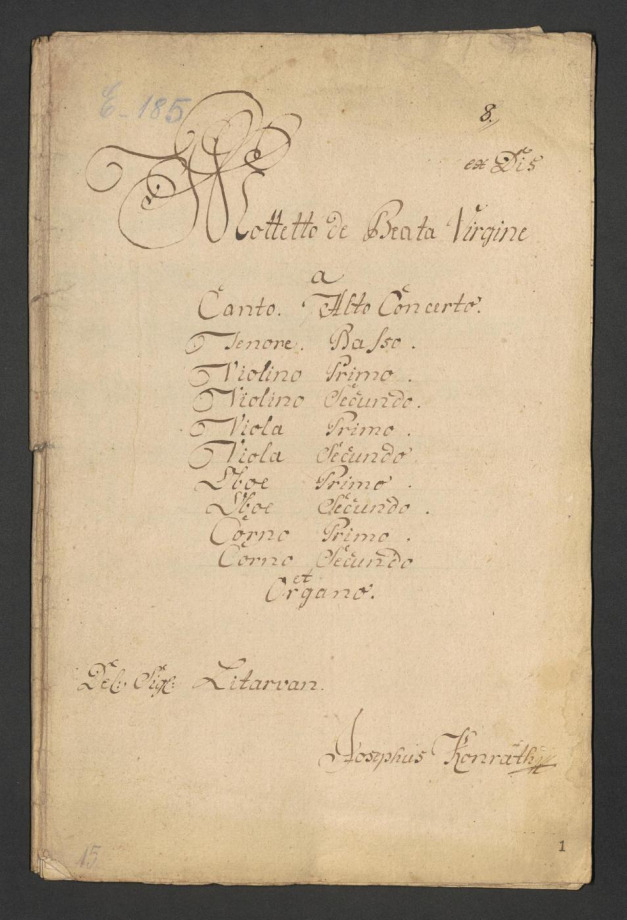 E-185
8.
ex Dis
Mottetto de Beata Virgine
a
Canto. Alto Concerto.
Tenore. Basso.
Violino Primo.
Violino Secundo.
Viola Primo.
Viola Secundo
Oboe Primo.
Oboe Secundo.
Corno Primo.
Corno Secundo
et
Organo.
Del: Sigl: Litarvan.
Josephus Konrath
15
1